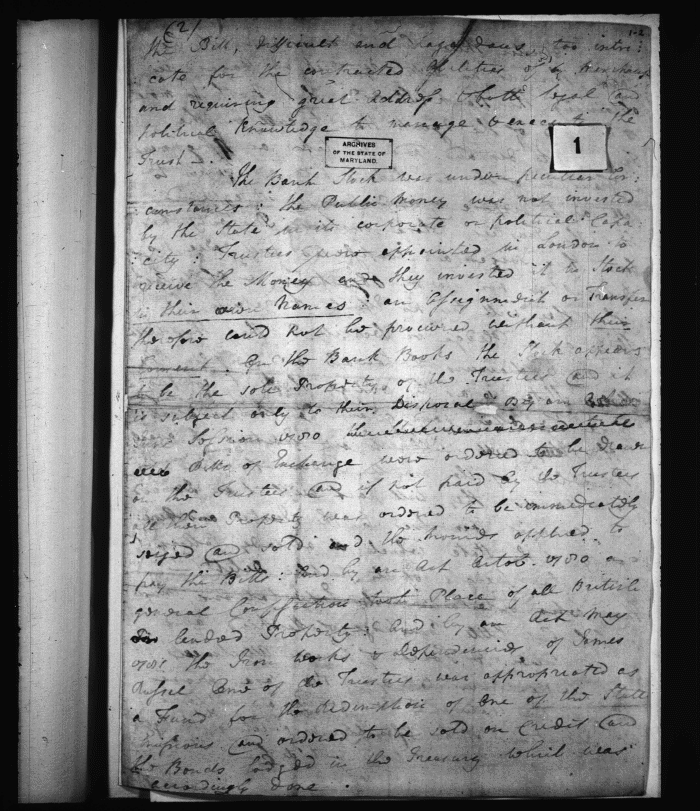 (2)
1-2
the Bill, difficult and hazardous, too intri:
cate for the contracted abilities of by
and requiring great address & both legal and
political Knowledge to manage & execute the
Trust.
ARCHIVES
OF THE STATE OF
MARYLAND.
1
The Bank Stock was under peculiar Cir:
cumstances: the Public Money was not invested
by the State in its corporate or political Capa
city: Trustees were appointed in London to
receive the Money and they invested it in Stock
in their own Names: an Assignment or Transfer
therefore could not be procured without their
Consent. On the Bank Books the Stock appears
to be the sole Property of the Trustees and it
is subject only to their Disposal. By an
Session 1780
Bills of Exchange were ordered to be drawn
on the Trustees and if not paid by the Trustees
all their Property was ordered to be immediately
seized and sold and the monies applied to
pay the Bills: And by an Act Octob. 1780 a
general Confiscation took Place of all British
landed Property: And by an Act May
1781 the Iron works & dependencies of James
Russel One of the Trustees was appropriated as
a Fund for the Redemption of One of the State
Emissions and ordered to be sold on Credit and
the Bonds lodged in the Treasury which was
accordingly done.